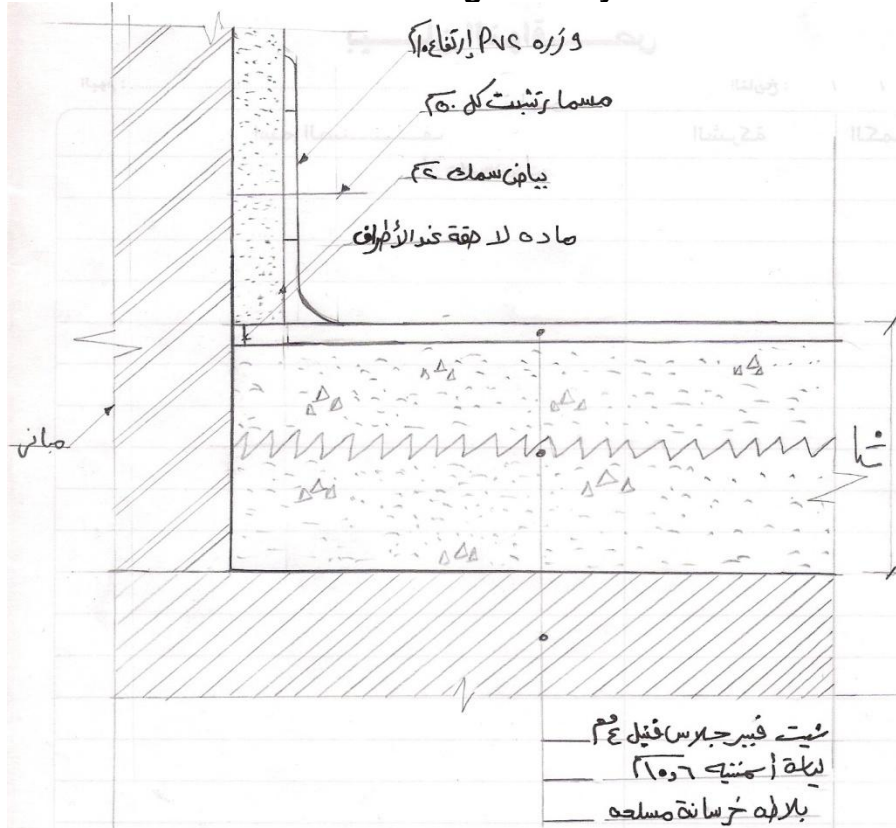 وزره PVC إرتفاع ١٠سم
مسمار تثبت كل ٥٠سم
بياض سمك ٢سم
ماده لاصقة عند الأطراف
مباني
شيت فيبر جلاس فنيل ٤مم
لياسة أسمنتيه
بلاطه خرسانة مسلحه